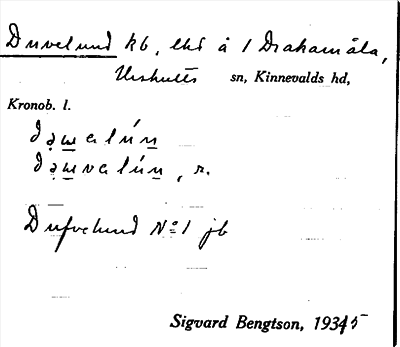 Duvelund kb, lhs å 1 Drakamåla,
Urshults sn, Kinnevalds hd,
Kronob. l.
Dufvelund No 1 jb
Sigvard Bengtson, 1935